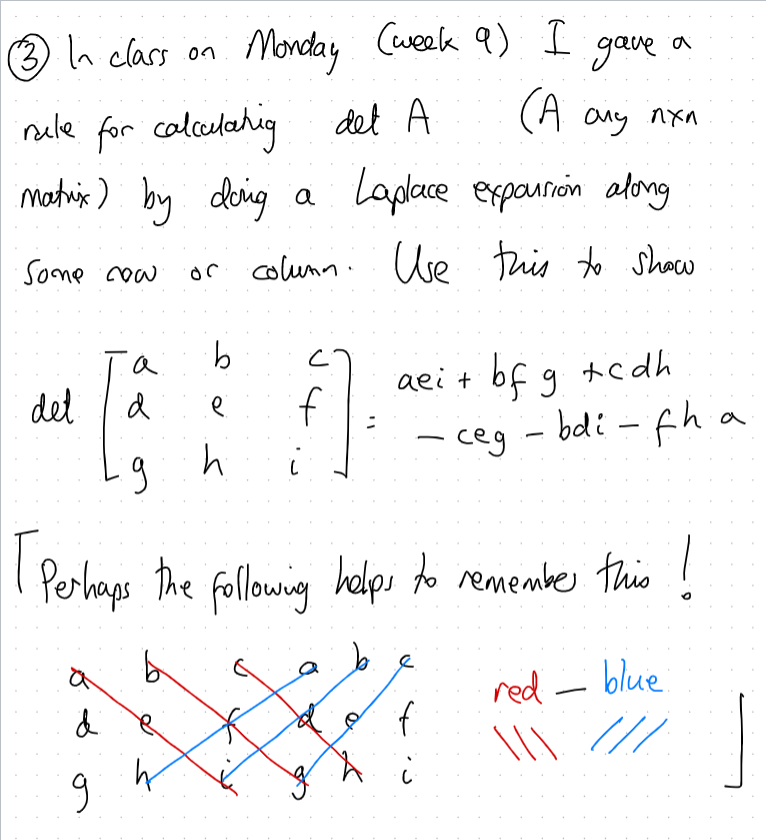 ③ In class on Monday (week 9) I gave a
rule for calculating det A (A any nxn
matrix) by doing a Laplace expansion along
some row or column. Use this to show
det [ a b c = aei + bfg + cdh
d e f - ceg - bdi - fha
g h i ]
[ Perhaps the following helps to remember this !
a b c a b c red — blue
d e f d e f
g h i g h i ]